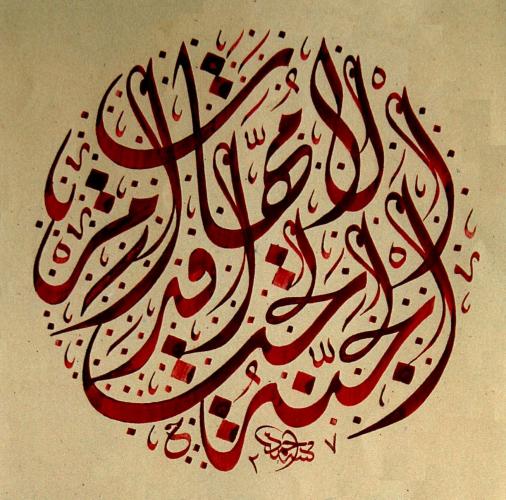 الجنّة تحت اقدام الامّهات